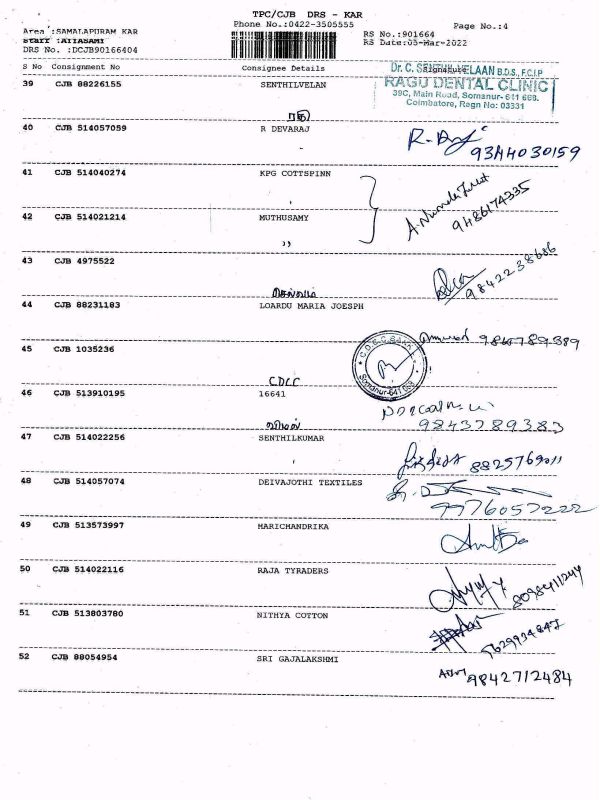 TPC/CJB DRS - KAR
Phone No.:0422-3505555
Page No.:4
Area :SAMALAPURAM KAR
Staff :AIYASAMI
DRS No. :DCJB90166404
RS No.:901664
RS Date:05-Mar-2022
S No Consignment No Consignee Details Signature
39 CJB 88226155 SENTHILVELAN
Dr. C. SENTHILVELAAN B.D.S., F.C.I.P
RAGU DENTAL CLINIC
39C, Main Road, Somanur- 641 668.
Coimbatore, Regn No: 03331
40 CJB 514057059 R DEVARAJ
9344030159
41 CJB 514040274 KPG COTTSPINN
42 CJB 514021214 MUTHUSAMY
9486174335
,,
43 CJB 4975522
9842238686
செல்வம்
44 CJB 88231183 LOARDU MARIA JOESPH
45 CJB 1035236
C.D.C.C. Bank
Somanur-641 668
CDCC
46 CJB 513910195 16641
9843789383
47 CJB 514022256 SENTHILKUMAR
8825769011
48 CJB 514057074 DEIVAJOTHI TEXTILES
9976057222
49 CJB 513573997 HARICHANDRIKA
50 CJB 514022116 RAJA TYRADERS
8098411244
51 CJB 513803780 NITHYA COTTON
52 CJB 88054954 SRI GAJALAKSHMI
9842712484